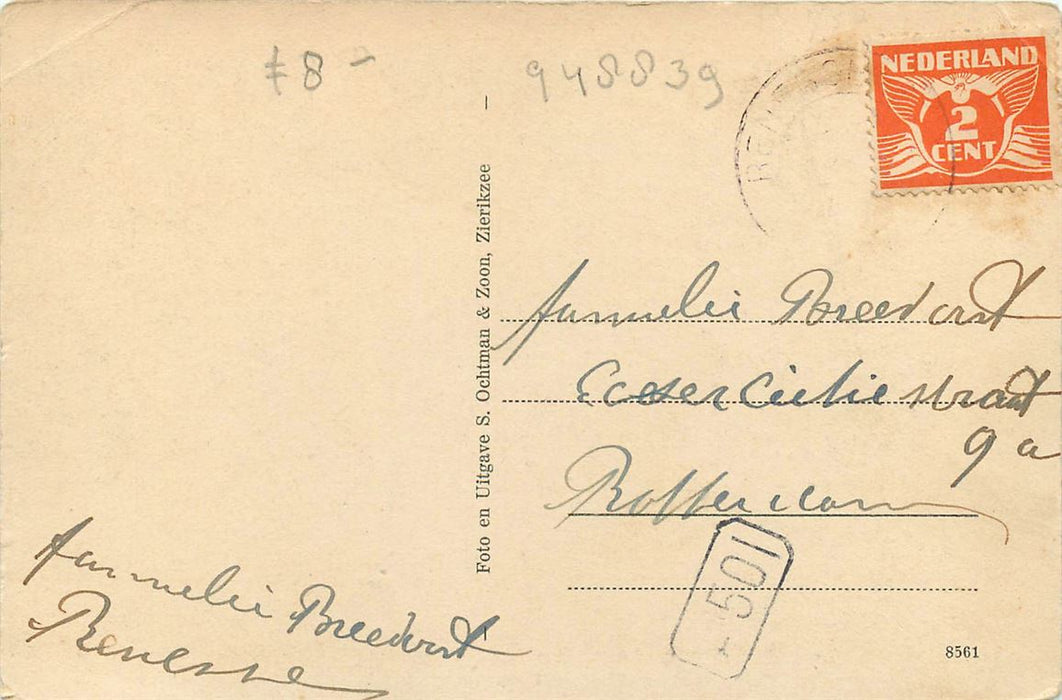 € 8 -
948839
NEDERLAND
2
CENT
Foto en Uitgave S. Ochtman & Zoon, Zierikzee
fammelie Breedvorst
straat
9 a
Rotterdam
- 501
fammelie Breedvorst
Renesse
8561